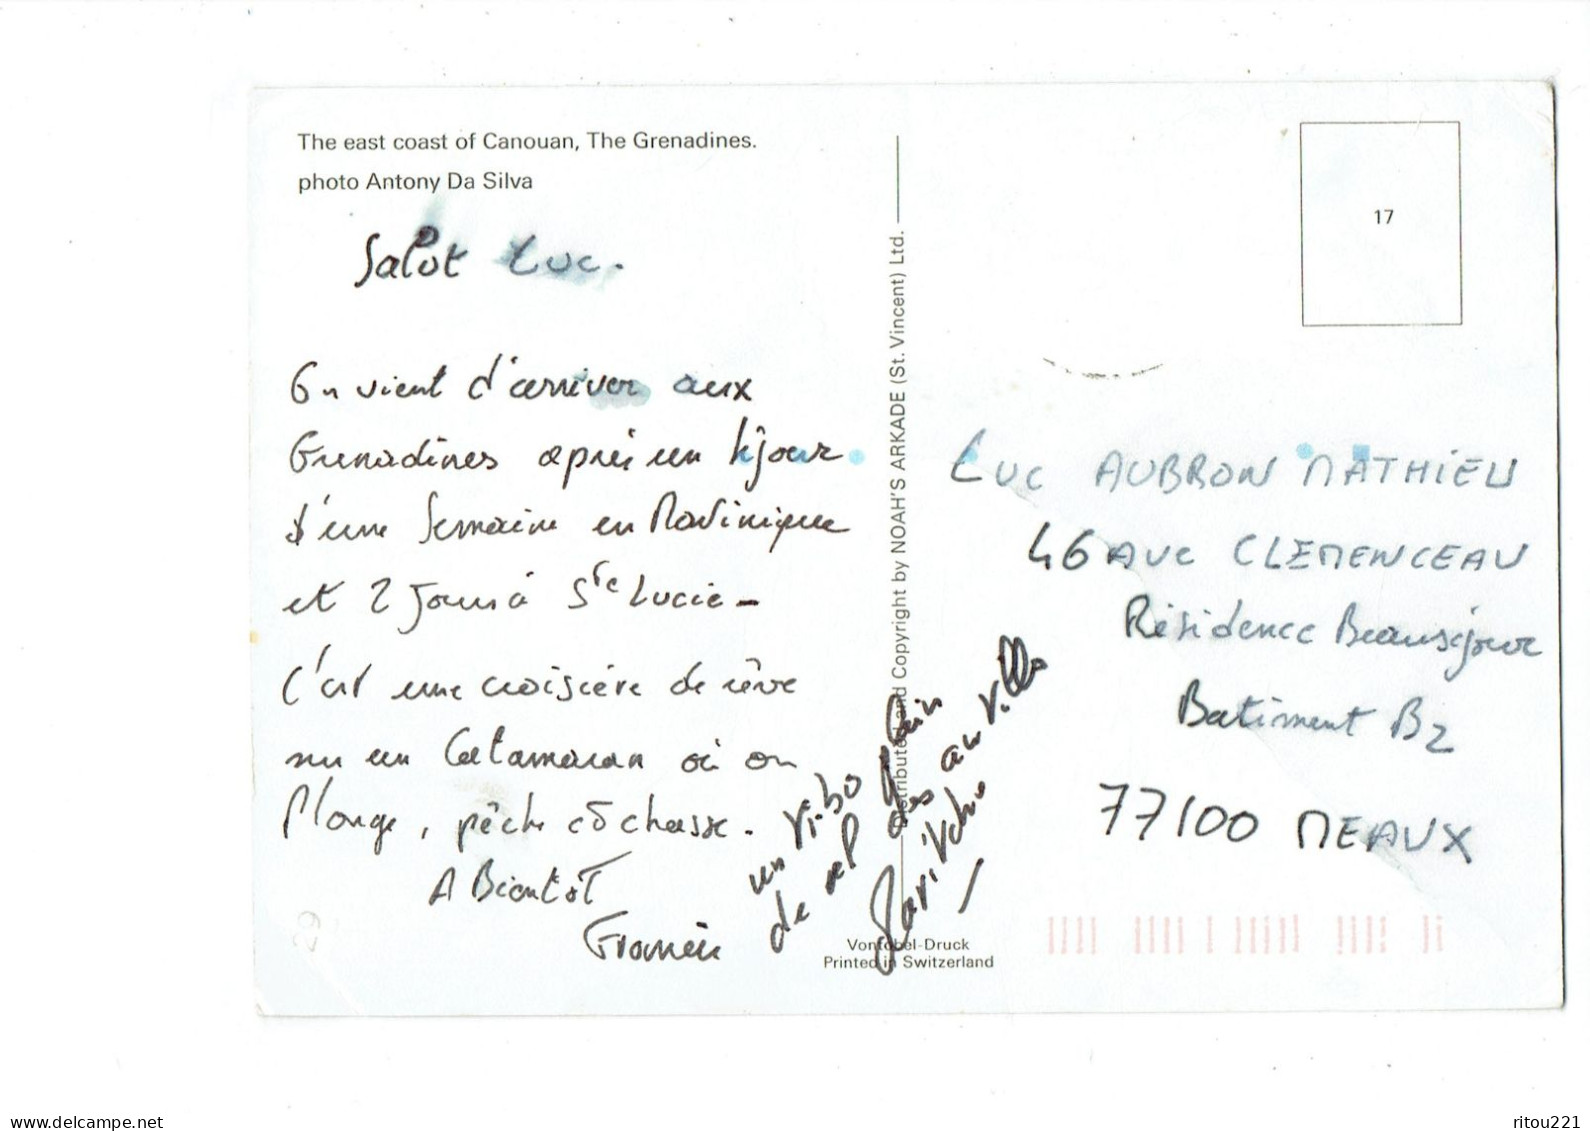 The east coast of Canouan, The Grenadines.
photo Antony Da Silva
Salut Luc.
On vient d'arriver aux
Grenadines après un séjour
d'une Semaine en Martinique
et 2 Jours à Ste Lucie -
C'est une croisière de rêve
sur un Catamaran où on
Plonge, pêche et chasse.
A Bientôt
Francis
un
de sel
Distributed and Copyright by NOAH'S ARKADE (St. Vincent) Ltd.
Vontobel-Druck
Printed in Switzerland
17
Luc AUBRON MATHIEU
46 AVE CLEMENCEAU
Résidence Beauséjour
Batiment B2
77100 MEAUX
29
www.delcampe.net
ritou221